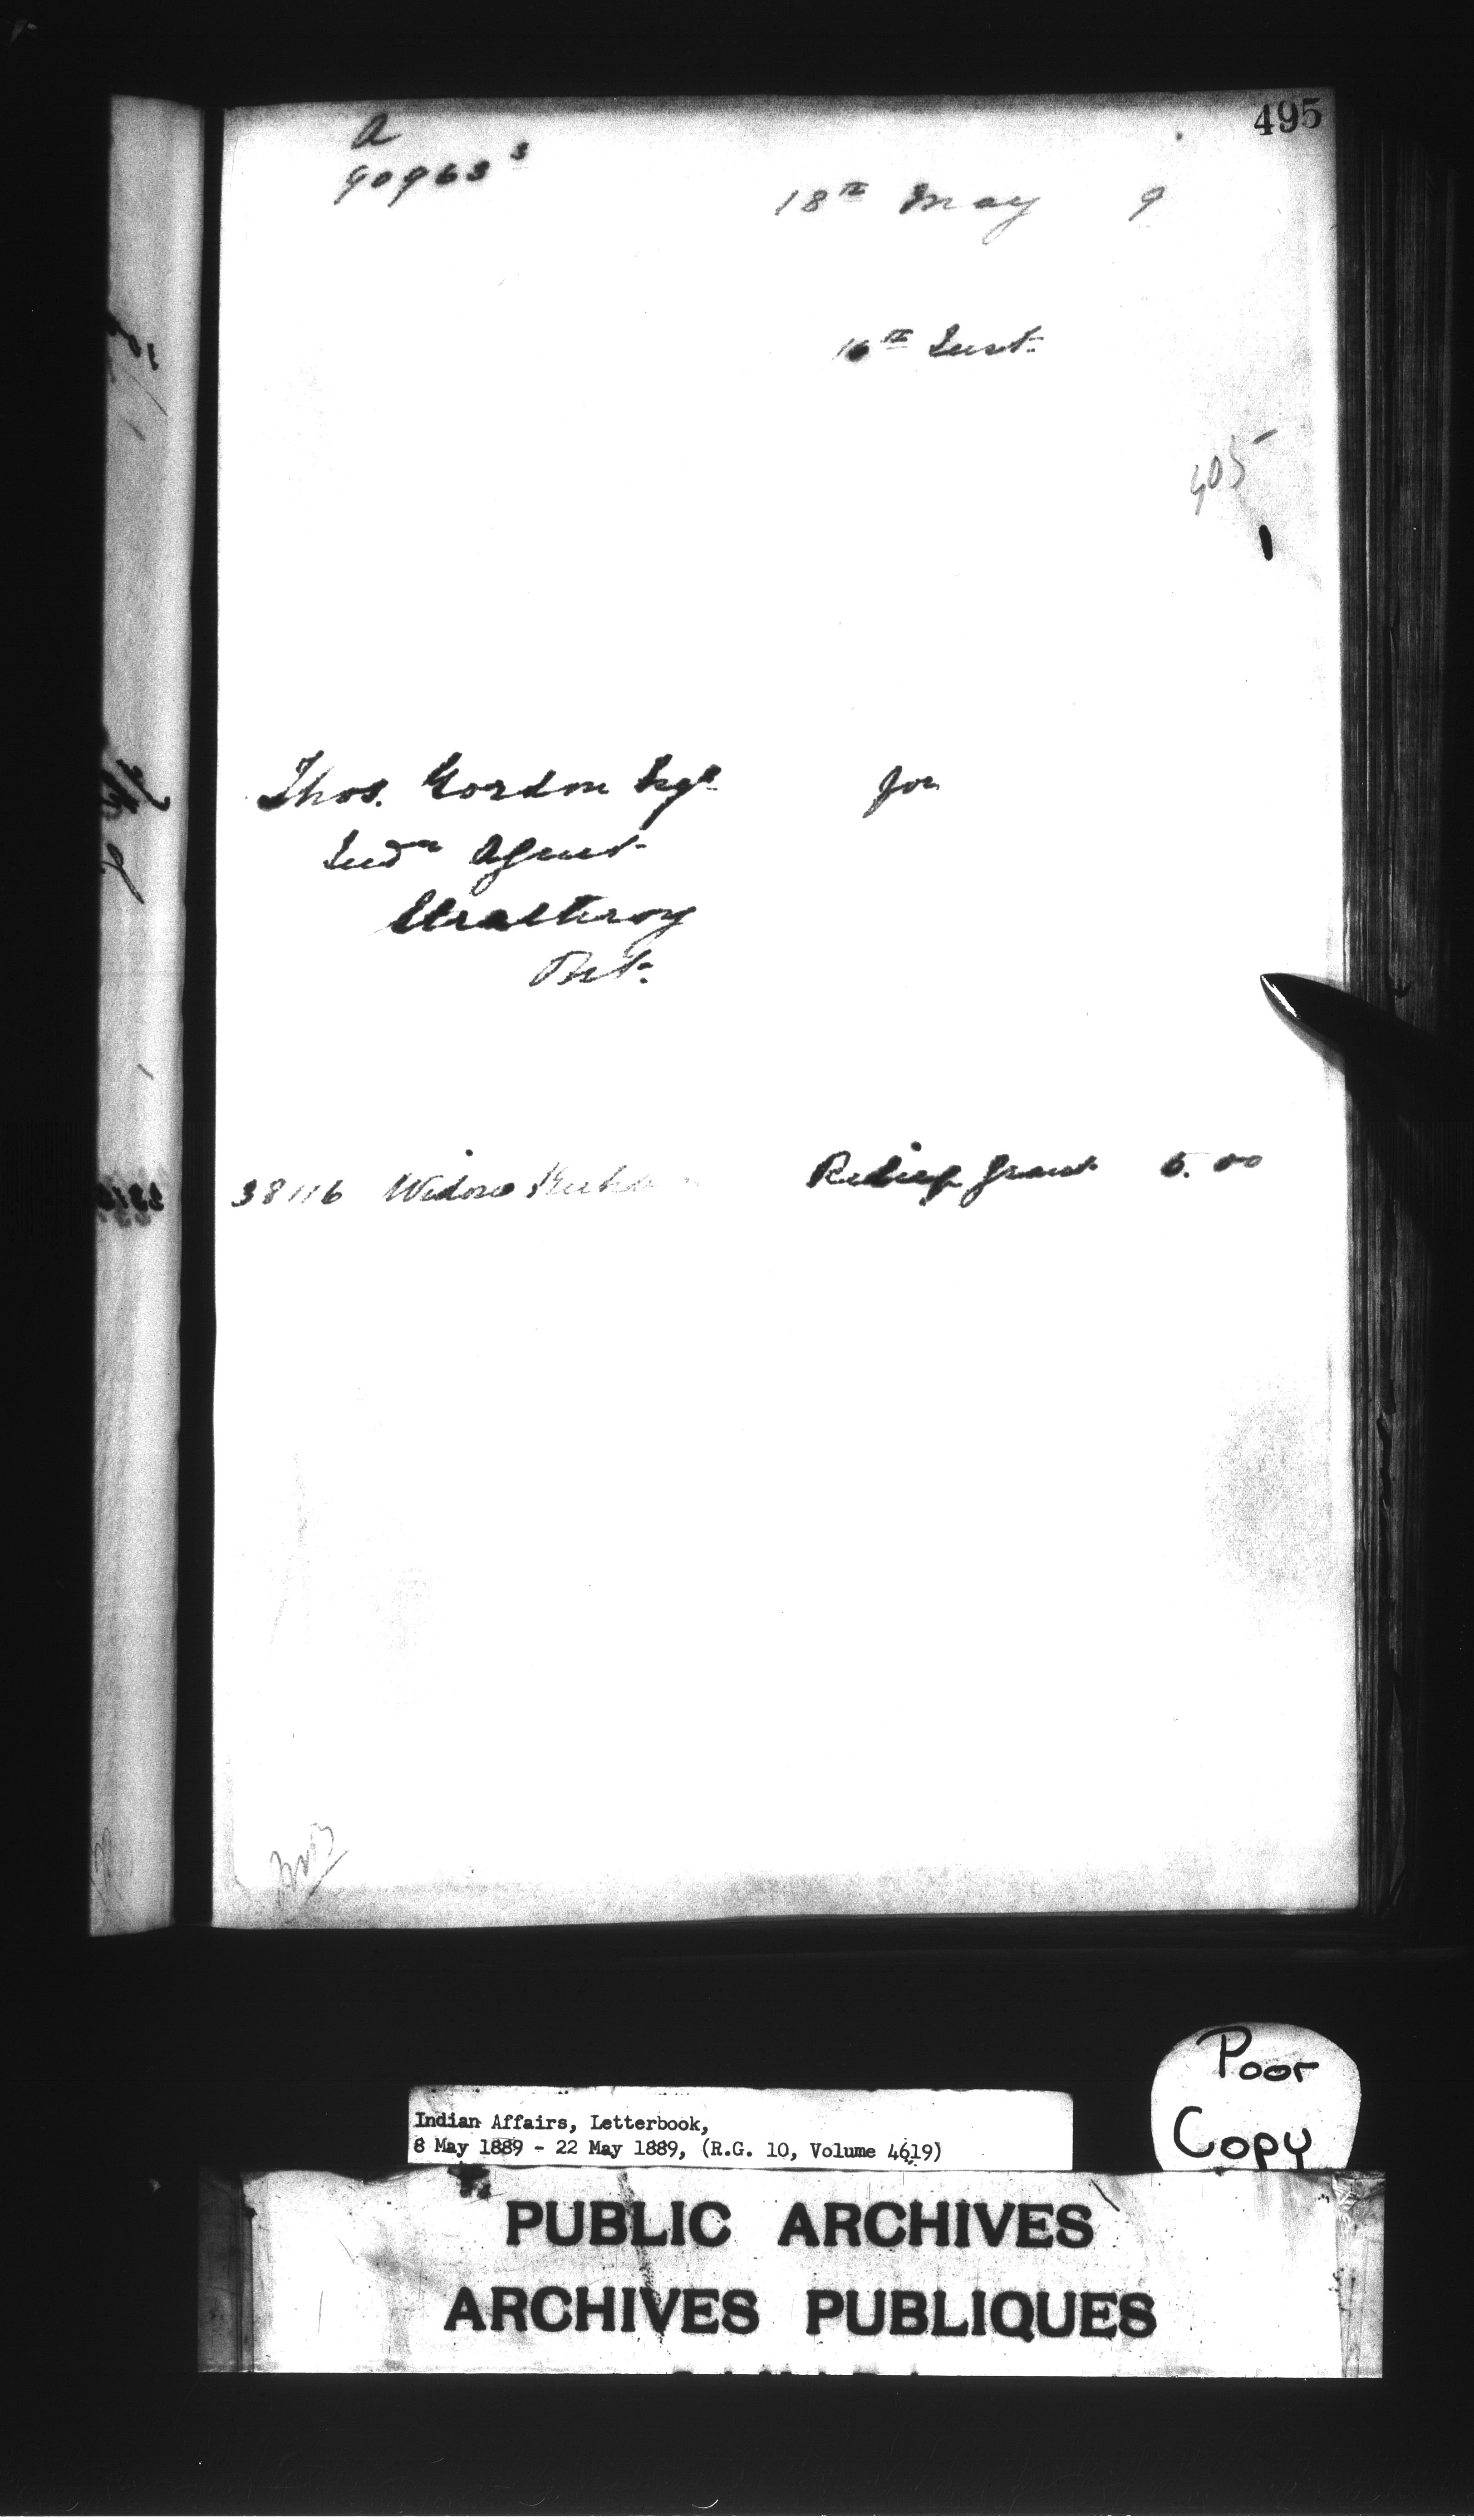 495
a
90963 3
18th May 9
16th Inst.
405
Thos. Gordon Esqr
for
Indn Agent
Strathroy
Ont.
38116 Widow Relief Grant 5.00
Poor
Copy
Indian Affairs, Letterbook,
8 May 1889 - 22 May 1889, (R.G. 10, Volume 4619)
PUBLIC ARCHIVES
ARCHIVES PUBLIQUES